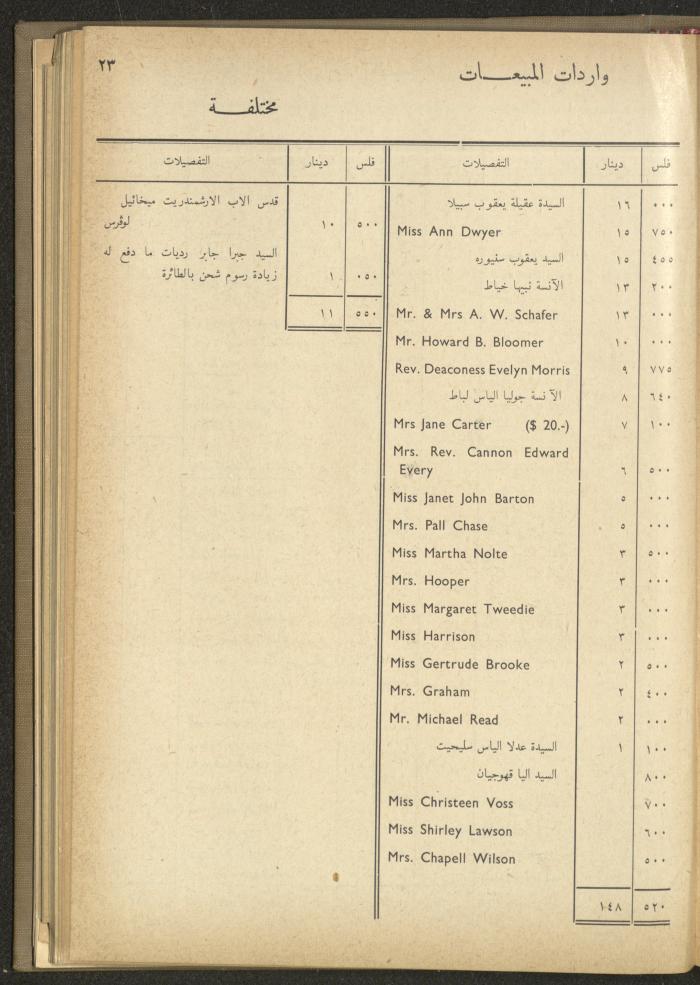 ٢٣
واردات المبيعـــات
مختلفـــة
فلس دينار التفصيلات
٠٠٠ ١٦ السيدة عقيلة يعقوب سبيلا
٧٥٠ ١٥ Miss Ann Dwyer
٤٥٥ ١٥ السيد يعقوب سنيوره
٢٠٠ ١٣ الآنسة نبيها خياط
٠٠٠ ١٣ Mr. & Mrs A. W. Schafer
٠٠٠ ١٠ Mr. Howard B. Bloomer
٧٧٥ ٩ Rev. Deaconess Evelyn Morris
٦٤٠ ٨ الآنسة جوليا الياس لباط
١٠٠ ٧ Mrs Jane Carter ($ 20.-)
Mrs. Rev. Cannon Edward
٥٠٠ ٦ Every
٠٠٠ ٥ Miss Janet John Barton
٠٠٠ ٥ Mrs. Pall Chase
٥٠٠ ٣ Miss Martha Nolte
٠٠٠ ٣ Mrs. Hooper
٠٠٠ ٣ Miss Margaret Tweedie
٠٠٠ ٣ Miss Harrison
٥٠٠ ٢ Miss Gertrude Brooke
٤٠٠ ٢ Mrs. Graham
٠٠٠ ٢ Mr. Michael Read
١٠٠ ١ السيدة عدلا الياس سليحيت
٨٠٠ السيد اليا قهوجيان
٧٠٠ Miss Christeen Voss
٦٠٠ Miss Shirley Lawson
٥٠٠ Mrs. Chapell Wilson
٥٢٠ ١٤٨
فلس دينار التفصيلات
قدس الاب الارشمندريت ميخائيل
٥٠٠ ١٠ لوڤرس
السيد جبرا جابر رديات ما دفع له
٠٥٠ ١ زيادة رسوم شحن بالطائرة
٥٥٠ ١١